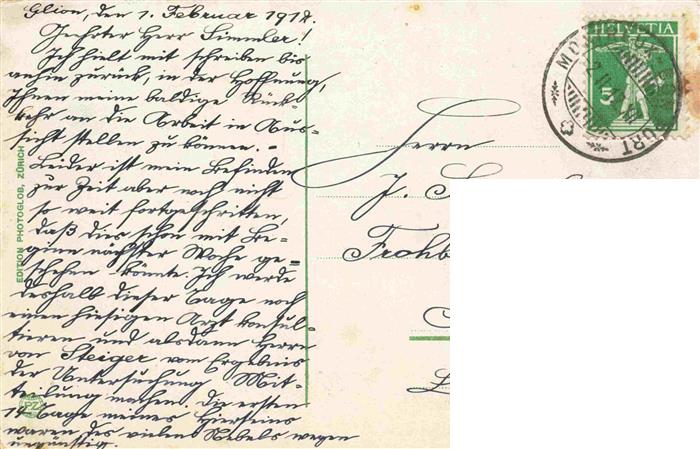 Glion, den 1. Februar 1912.
Geehrter Herr Simmler!
Ich hielt mit schreiben bis
anhin zurück, in der Hoffnung,
Ihnen meine baldige Rück-
kehr an die Arbeit in Aus-
sicht stellen zu können. –
Leider ist mein Befinden
zur Zeit aber noch nicht
so weit fortgeschritten,
daß dies schon mit Be-
ginn nächster Woche ge-
schehen könnte. Ich werde
deshalb dieser Tage noch
einen hiesigen Arzt konsul-
tieren und alsdann Herrn
von Steiger vom Ergebnis
der Untersuchung Mit-
teilung machen. Die ersten
14 Tage meines Hierseins
waren des vielen Nebels wegen
ungünstig.
EDITION PHOTOGLOB, ZÜRICH
PZ
HELVETIA
5
Herrn
J. S
Frohb